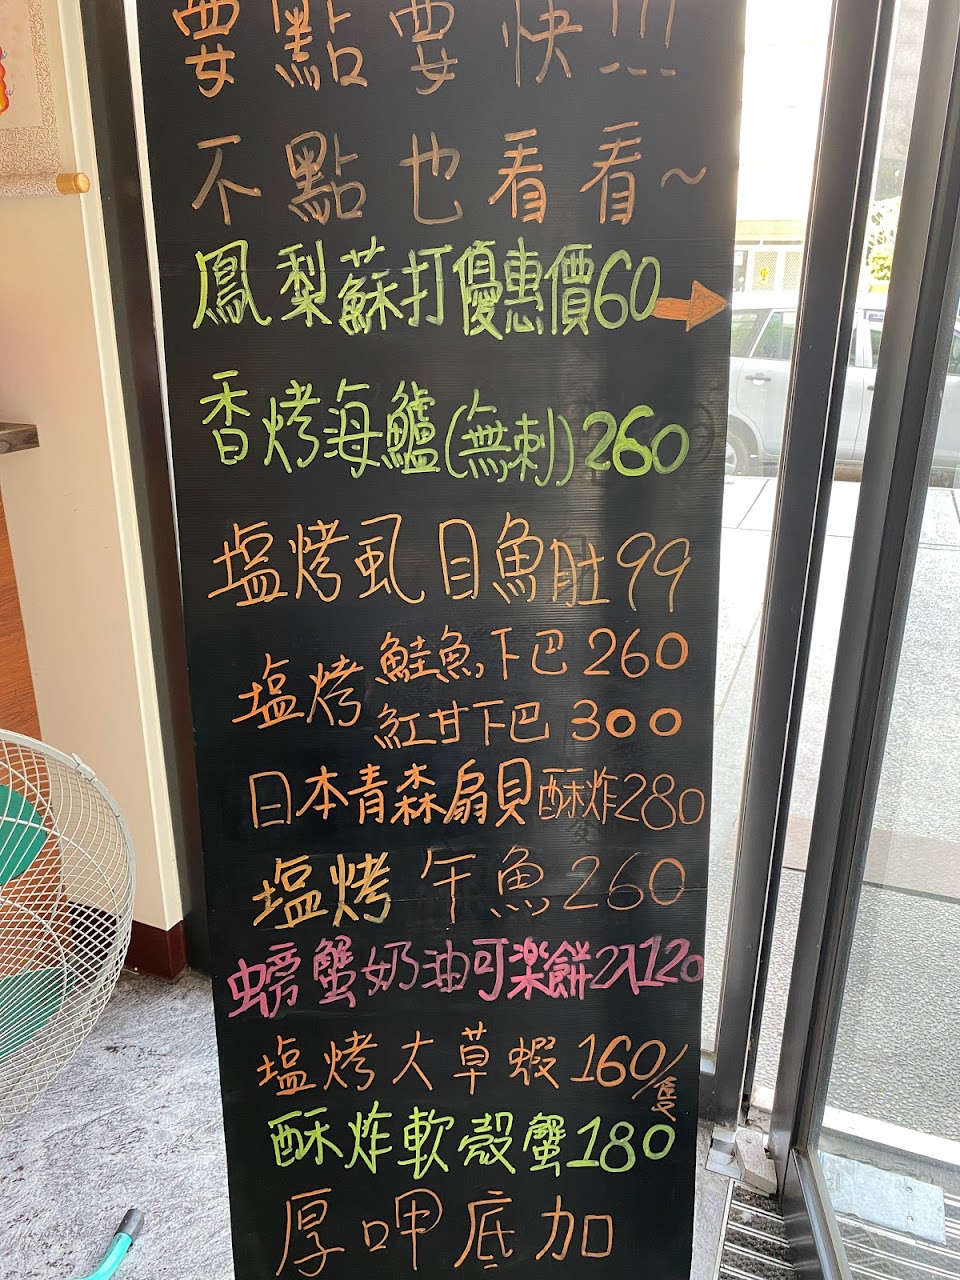 要點要快!!!
不點也看看~
鳳梨蘇打優惠價60
香烤海鱸(無刺)260
塩烤虱目魚肚99
塩烤
鮭魚下巴260
紅甘下巴300
日本青森扇貝酥炸280
塩烤午魚260
螃蟹奶油可楽餅2入120
塩烤大草蝦160/隻
酥炸軟殼蟹180
厚呷底加